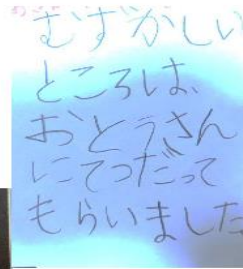 むずかしい
ところは、
おとうさん
にてつだって
もらいました